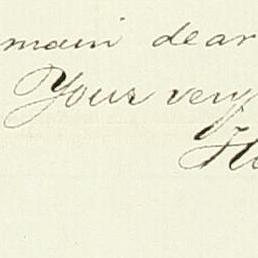 main dear
Your very